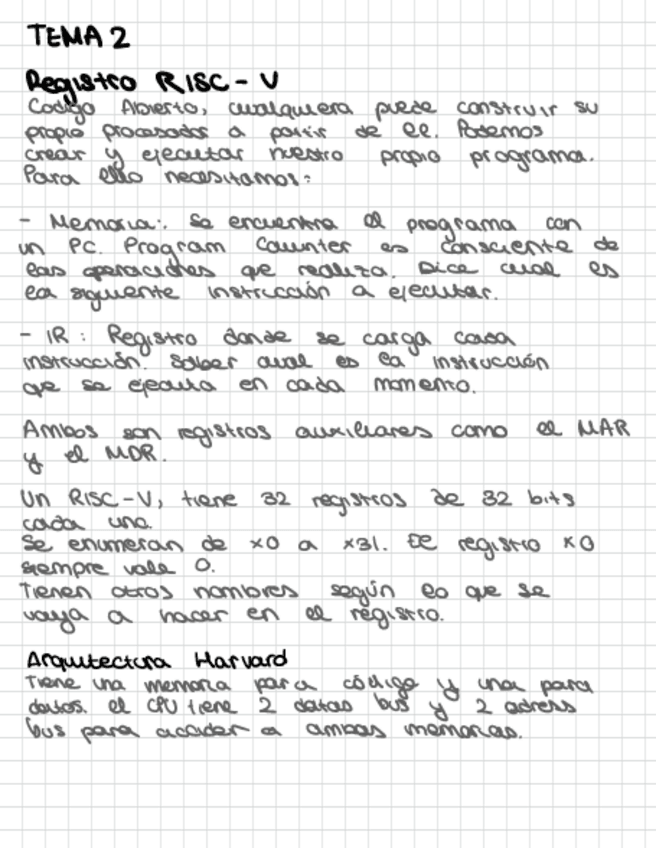 TEMA 2
Registro RISC-V
Codigo Abierto, cualquiera puede construir su
propio procesador a partir de el. Podemos
crear y ejecutar nuestro propio programa.
Para ello necesitamos:
- Memoria:. Se encuentra el programa con
un PC. Program Counter es consciente de
las operaciones que realiza. Dice cual es
la siguiente instrucción a ejecutar.
- IR : Registro donde se carga cada
instrucción. Saber cual es la instrucción
que se ejecuta en cada momento.
Ambos son registros auxiliares como el MAR
y el MDR.
Un RISC-V, tiene 32 registros de 32 bits
cada uno.
Se enumeran de x0 a x31. El registro x0
siempre vale 0.
Tienen otros nombres según lo que se
vaya a hacer en el registro.
Arquitectura Harvard
Tiene una memoria para código y una para
datos. el CPU tiene 2 datas bus y 2 adress
bus para acceder a ambas memorias.